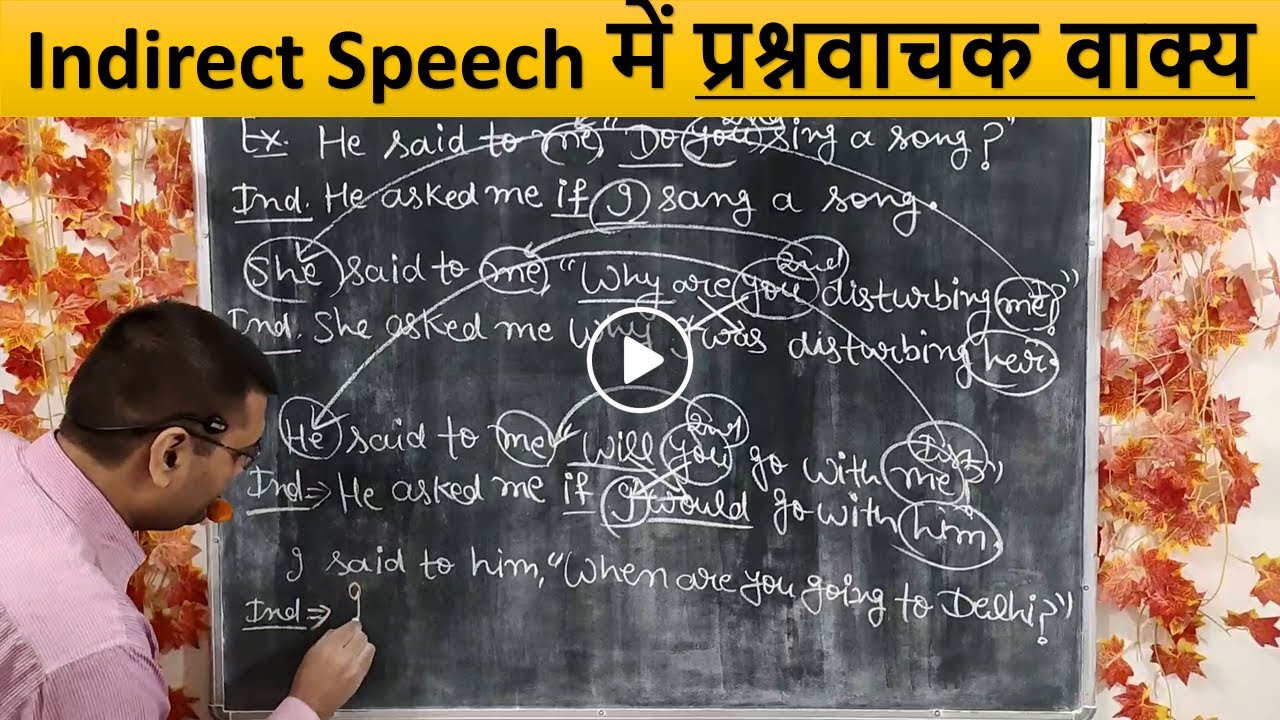 Indirect Speech में प्रश्नवाचक वाक्य
Ex. He said to me, "Do you sing a song?"
Ind. He asked me if I sang a song.
She said to me, "Why are you disturbing me?"
2nd
Ind. She asked me why I was disturbing her.
He said to me "Will you go with me?"
2nd
Ind⇒ He asked me if I would go with him.
I said to him, "When are you going to Delhi?"
Ind⇒ I